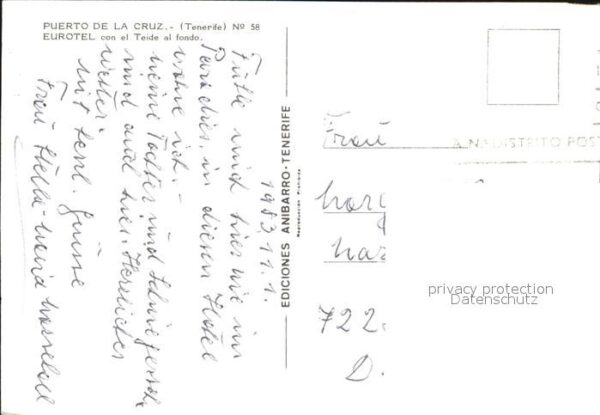 PUERTO DE LA CRUZ.- (Tenerife) Nº 58
EUROTEL con el Teide al fondo.
1983 11. 1.
Fühle mich hier wie im
Paradies, in diesem Hotel
wohne ich. -
meine Tochter und Schwiegersohn
sind auch hier. Herrliches
Wetter.
mit herzl. Grüsse
Frau Stella-Maria
EDICIONES ANIBARRO-TENERIFE
Reproducción Prohibida
Frau
722
D.
DISTRITO POST
privacy protection
Datenschutz